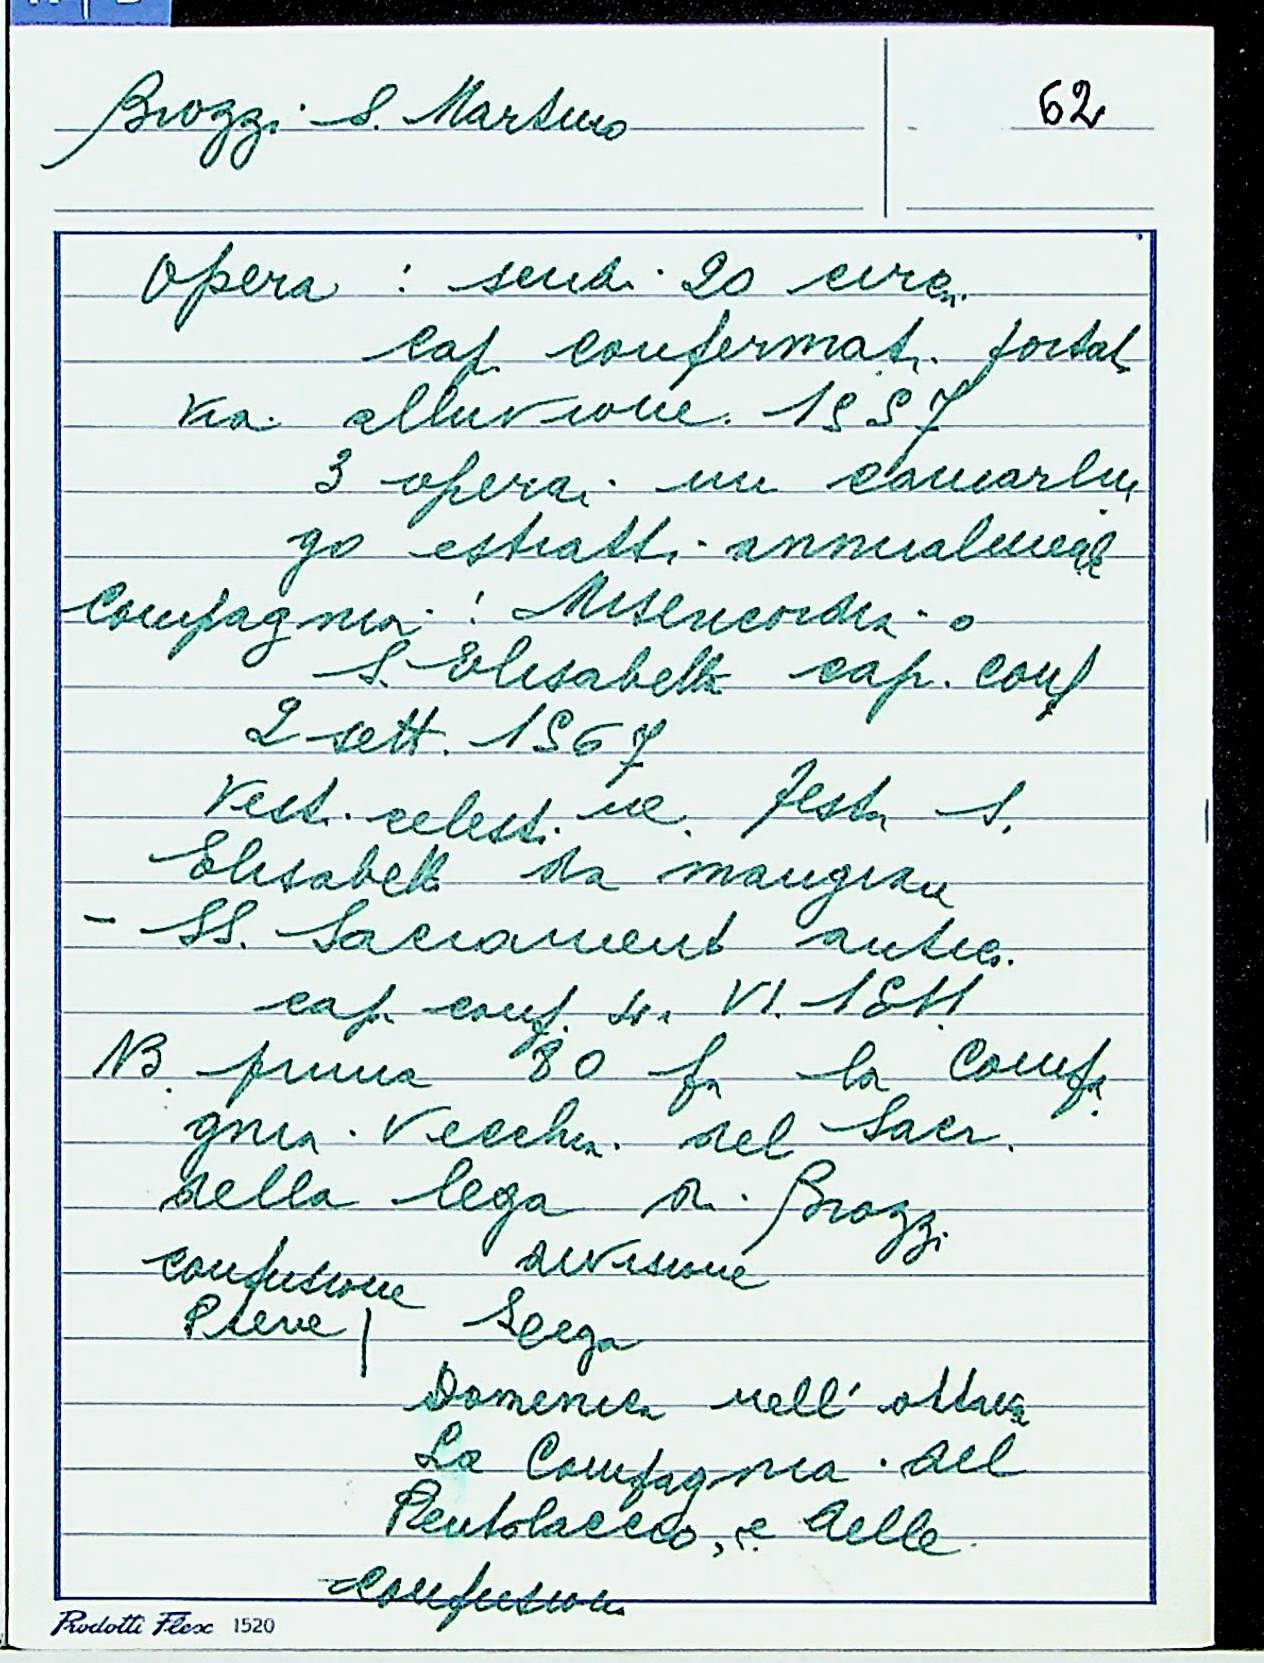 Brozzi S. Martino
62
Opera : scudi 20 circa
cap. confermati portati
via alluvione 1557
3 operai un camarlin
go estratti annualmente
Compagnia : Misericordia o
S. Elisabetta cap. conf
2 sett. 1567
Vest. celest. festa S.
Elisabetta da mangiare
- SS. Sacramento antica
cap. conf. VI.
NB. prima 80 fa la Compa
gnia Vecchia del Sacr.
della lega di Brozzi
confusione divisione
Pieve | Lega
Domenica nell' ottava
La Compagnia del
Pentolaccio, e delle
confusioni
Prodotti Flex 1520